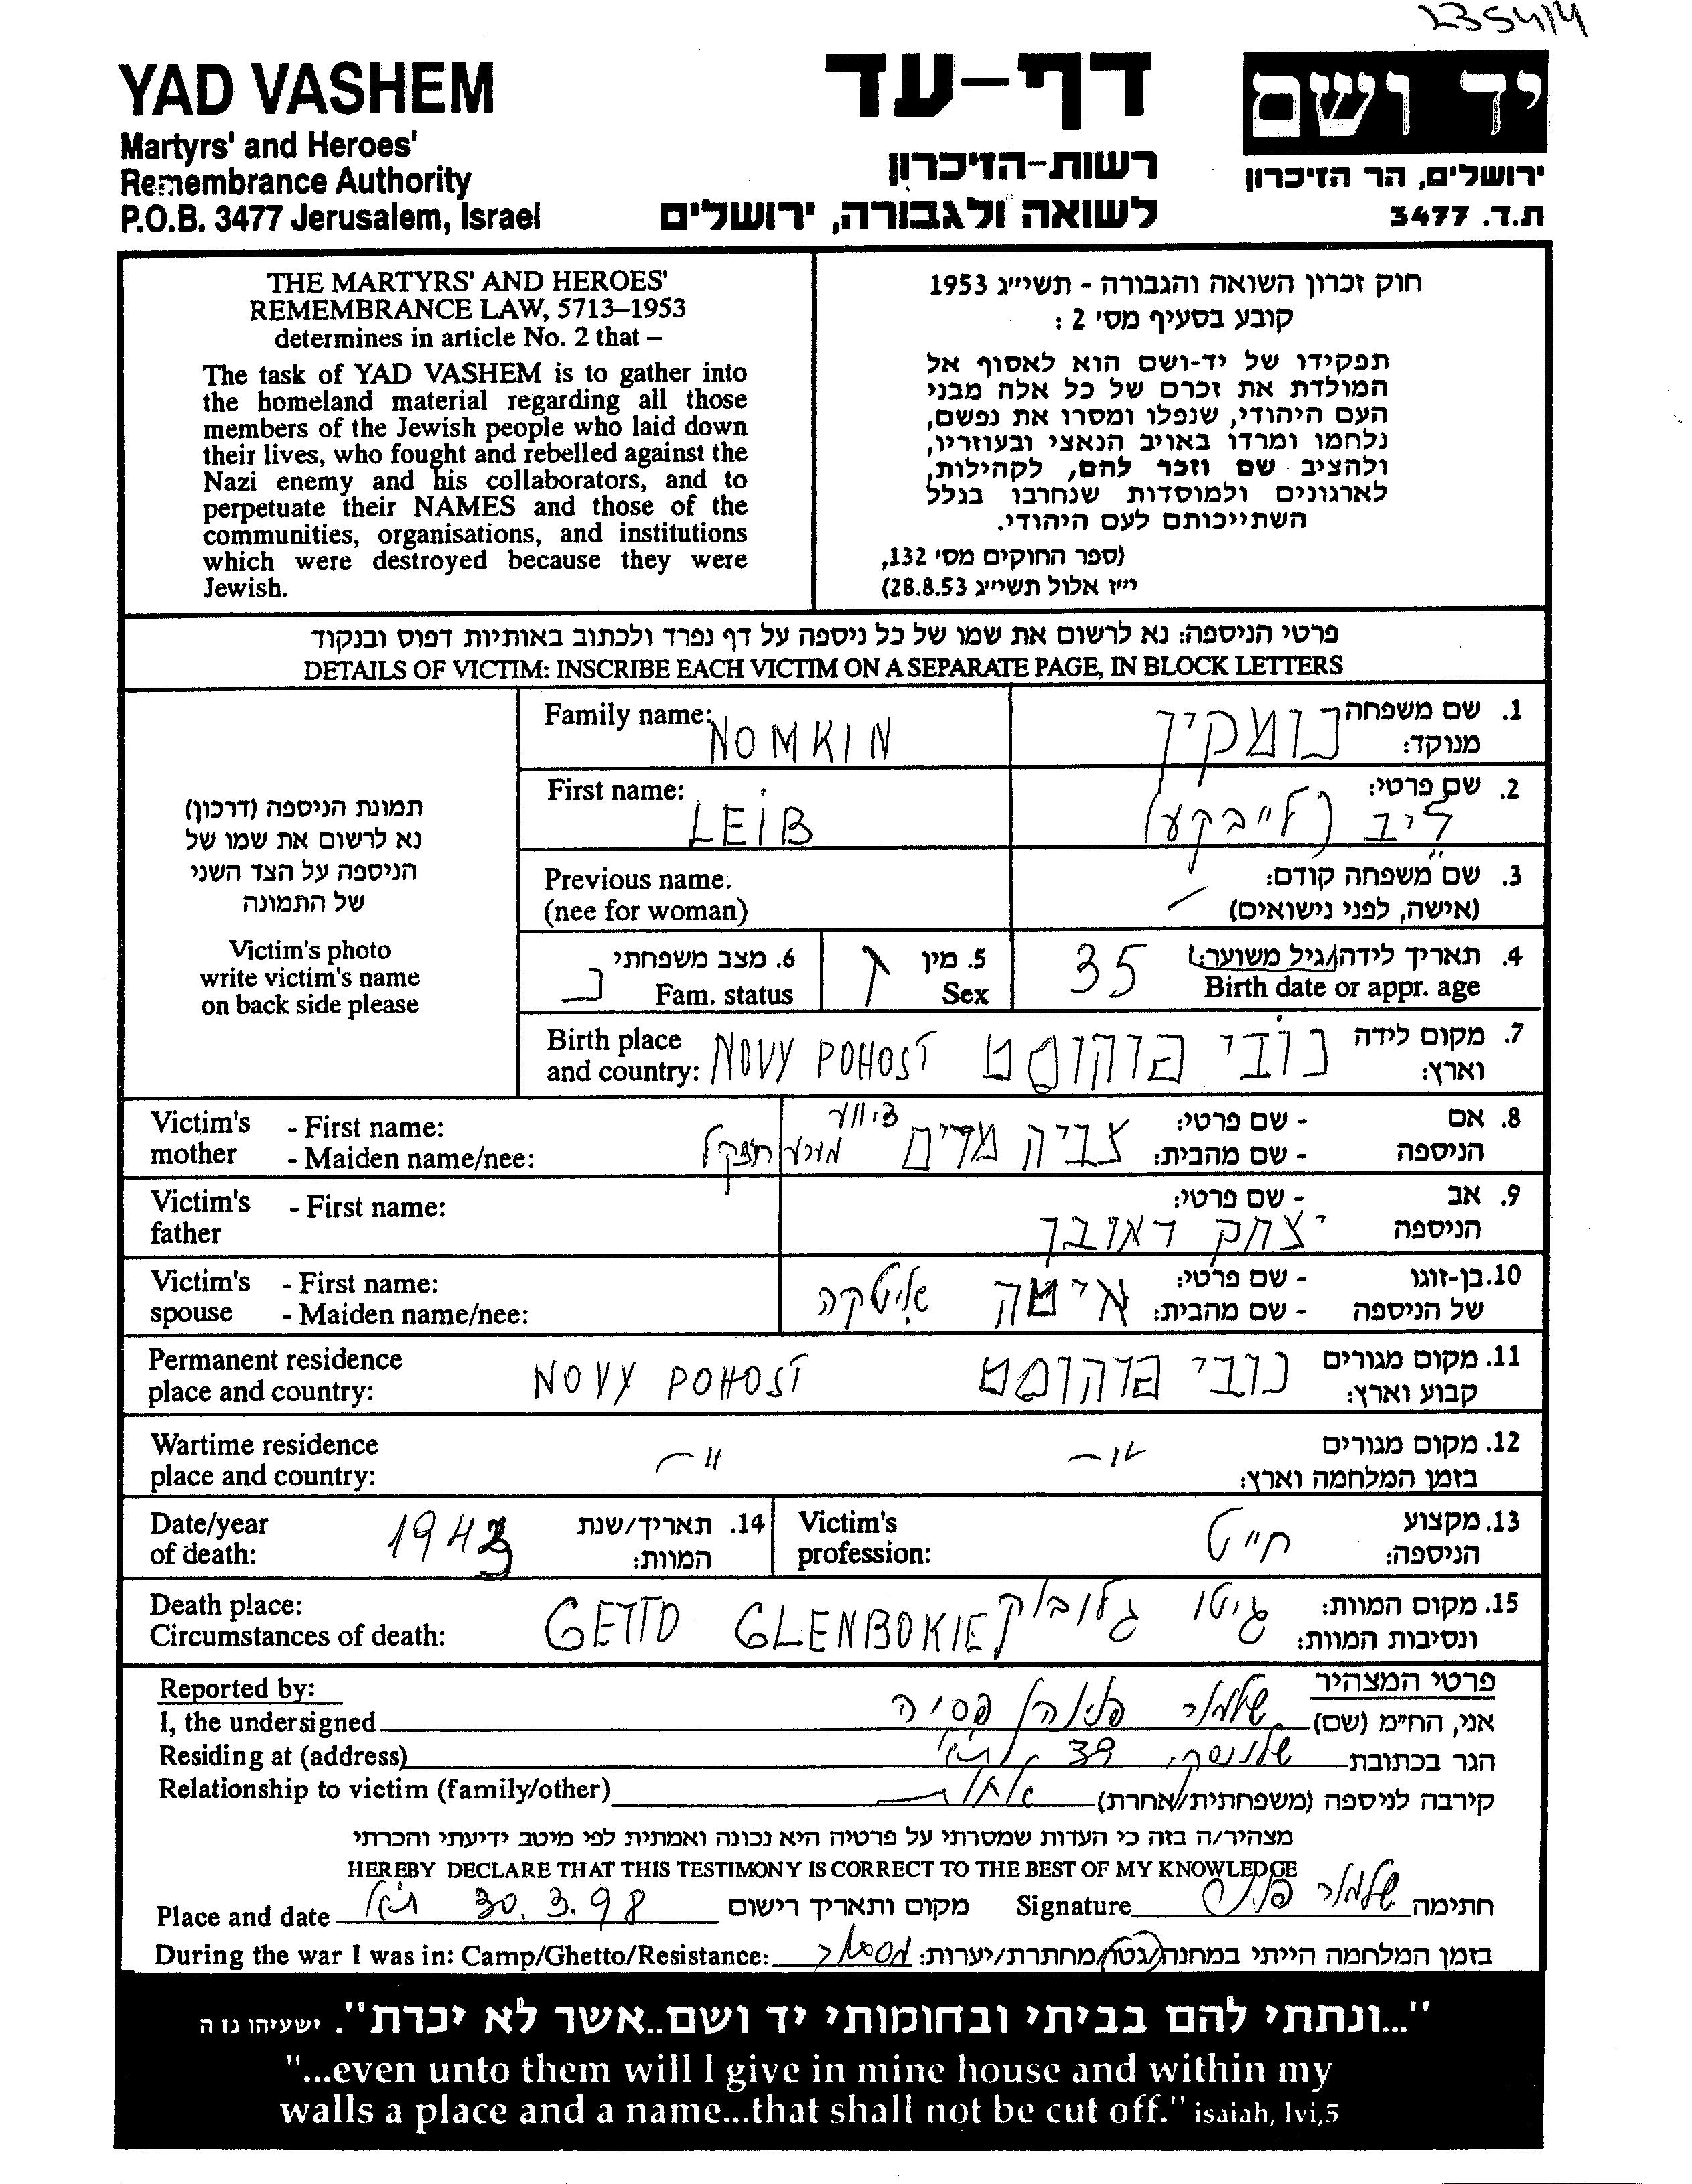 235414
YAD VASHEM
Martyrs' and Heroes'
Remembrance Authority
P.O.B. 3477 Jerusalem, Israel
דף-עד
רשות-הזיכרון
לשואה ולגבורה, ירושלים
יד ושם
ירושלים, הר הזיכרון
ת.ד. 3477
THE MARTYRS' AND HEROES'
REMEMBRANCE LAW, 5713–1953
determines in article No. 2 that –
The task of YAD VASHEM is to gather into
the homeland material regarding all those
members of the Jewish people who laid down
their lives, who fought and rebelled against the
Nazi enemy and his collaborators, and to
perpetuate their NAMES and those of the
communities, organisations, and institutions
which were destroyed because they were
Jewish.
חוק זכרון השואה והגבורה - תשי״ג 1953
קובע בסעיף מס׳ 2 :
תפקידו של יד-ושם הוא לאסוף אל
המולדת את זכרם של כל אלה מבני
העם היהודי, שנפלו ומסרו את נפשם,
נלחמו ומרדו באויב הנאצי ובעוזריו,
ולהציב שם וזכר להם, לקהילות,
לארגונים ולמוסדות שנחרבו בגלל
השתייכותם לעם היהודי.
(ספר החוקים מס׳ 132,
י״ז אלול תשי״ג 28.8.53)
פרטי הניספה: נא לרשום את שמו של כל ניספה על דף נפרד ולכתוב באותיות דפוס ובנקוד
DETAILS OF VICTIM: INSCRIBE EACH VICTIM ON A SEPARATE PAGE, IN BLOCK LETTERS
תמונת הניספה (דרכון)
נא לרשום את שמו של
הניספה על הצד השני
של התמונה
Victim's photo
write victim's name
on back side please
Family name: NOMKIN
1. שם משפחה מנוקד: נומקין
First name: LEIB
2. שם פרטי: ליב (לייבקע)
Previous name:
(nee for woman)
3. שם משפחה קודם:
(אישה, לפני נישואים)
4. תאריך לידה/גיל משוער: 35
Birth date or appr. age
5. מין ז
Sex
6. מצב משפחתי נ
Fam. status
Birth place
and country: NOVY POHOST
7. מקום לידה וארץ: נובי פוהוסט
Victim's mother - First name:
- Maiden name/nee:
8. אם הניספה - שם פרטי:
- שם מהבית: צביה מרים
Victim's father - First name:
9. אב הניספה - שם פרטי:
יצחק ראובן
Victim's spouse - First name:
- Maiden name/nee:
10. בן-זוגו של הניספה - שם פרטי:
- שם מהבית: איטה איטקה
Permanent residence
place and country: NOVY POHOST
11. מקום מגורים קבוע וארץ: נובי פוהוסט
Wartime residence
place and country: -"-
12. מקום מגורים
בזמן המלחמה וארץ: -"-
Date/year
of death: 1943
14. תאריך/שנת המוות:
Victim's
profession:
13. מקצוע הניספה: חייט
Death place:
Circumstances of death: GETTO GLENBOKIE
15. מקום המוות:
ונסיבות המוות: גיטו גלובוק
Reported by:
פרטי המצהיר
I, the undersigned
אני, הח״מ (שם)
Residing at (address)
הגר בכתובת 39
Relationship to victim (family/other)
קירבה לניספה (משפחתית/אחרת)
מצהיר/ה בזה כי העדות שמסרתי על פרטיה היא נכונה ואמתית לפי מיטב ידיעתי והכרתי
HEREBY DECLARE THAT THIS TESTIMONY IS CORRECT TO THE BEST OF MY KNOWLEDGE
Place and date 30.3.98 מקום ותאריך רישום
Signature חתימה
During the war I was in: Camp/Ghetto/Resistance:
בזמן המלחמה הייתי במחנה/גטו/מחתרת/יערות:
"...ונתתי להם בביתי ובחומותי יד ושם..אשר לא יכרת". ישעיהו נו ה
"...even unto them will I give in mine house and within my
walls a place and a name...that shall not be cut off." isaiah, lvi,5